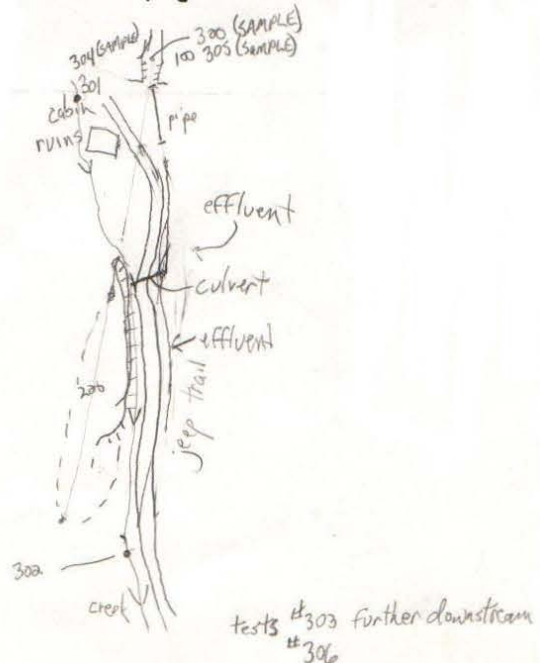 304 (SAMPLE)
300 (SAMPLE)
100 305 (SAMPLE)
301
cabin
ruins
pipe
effluent
culvert
effluent
jeep trail
200
302
creek
tests #303 further downstream
#306